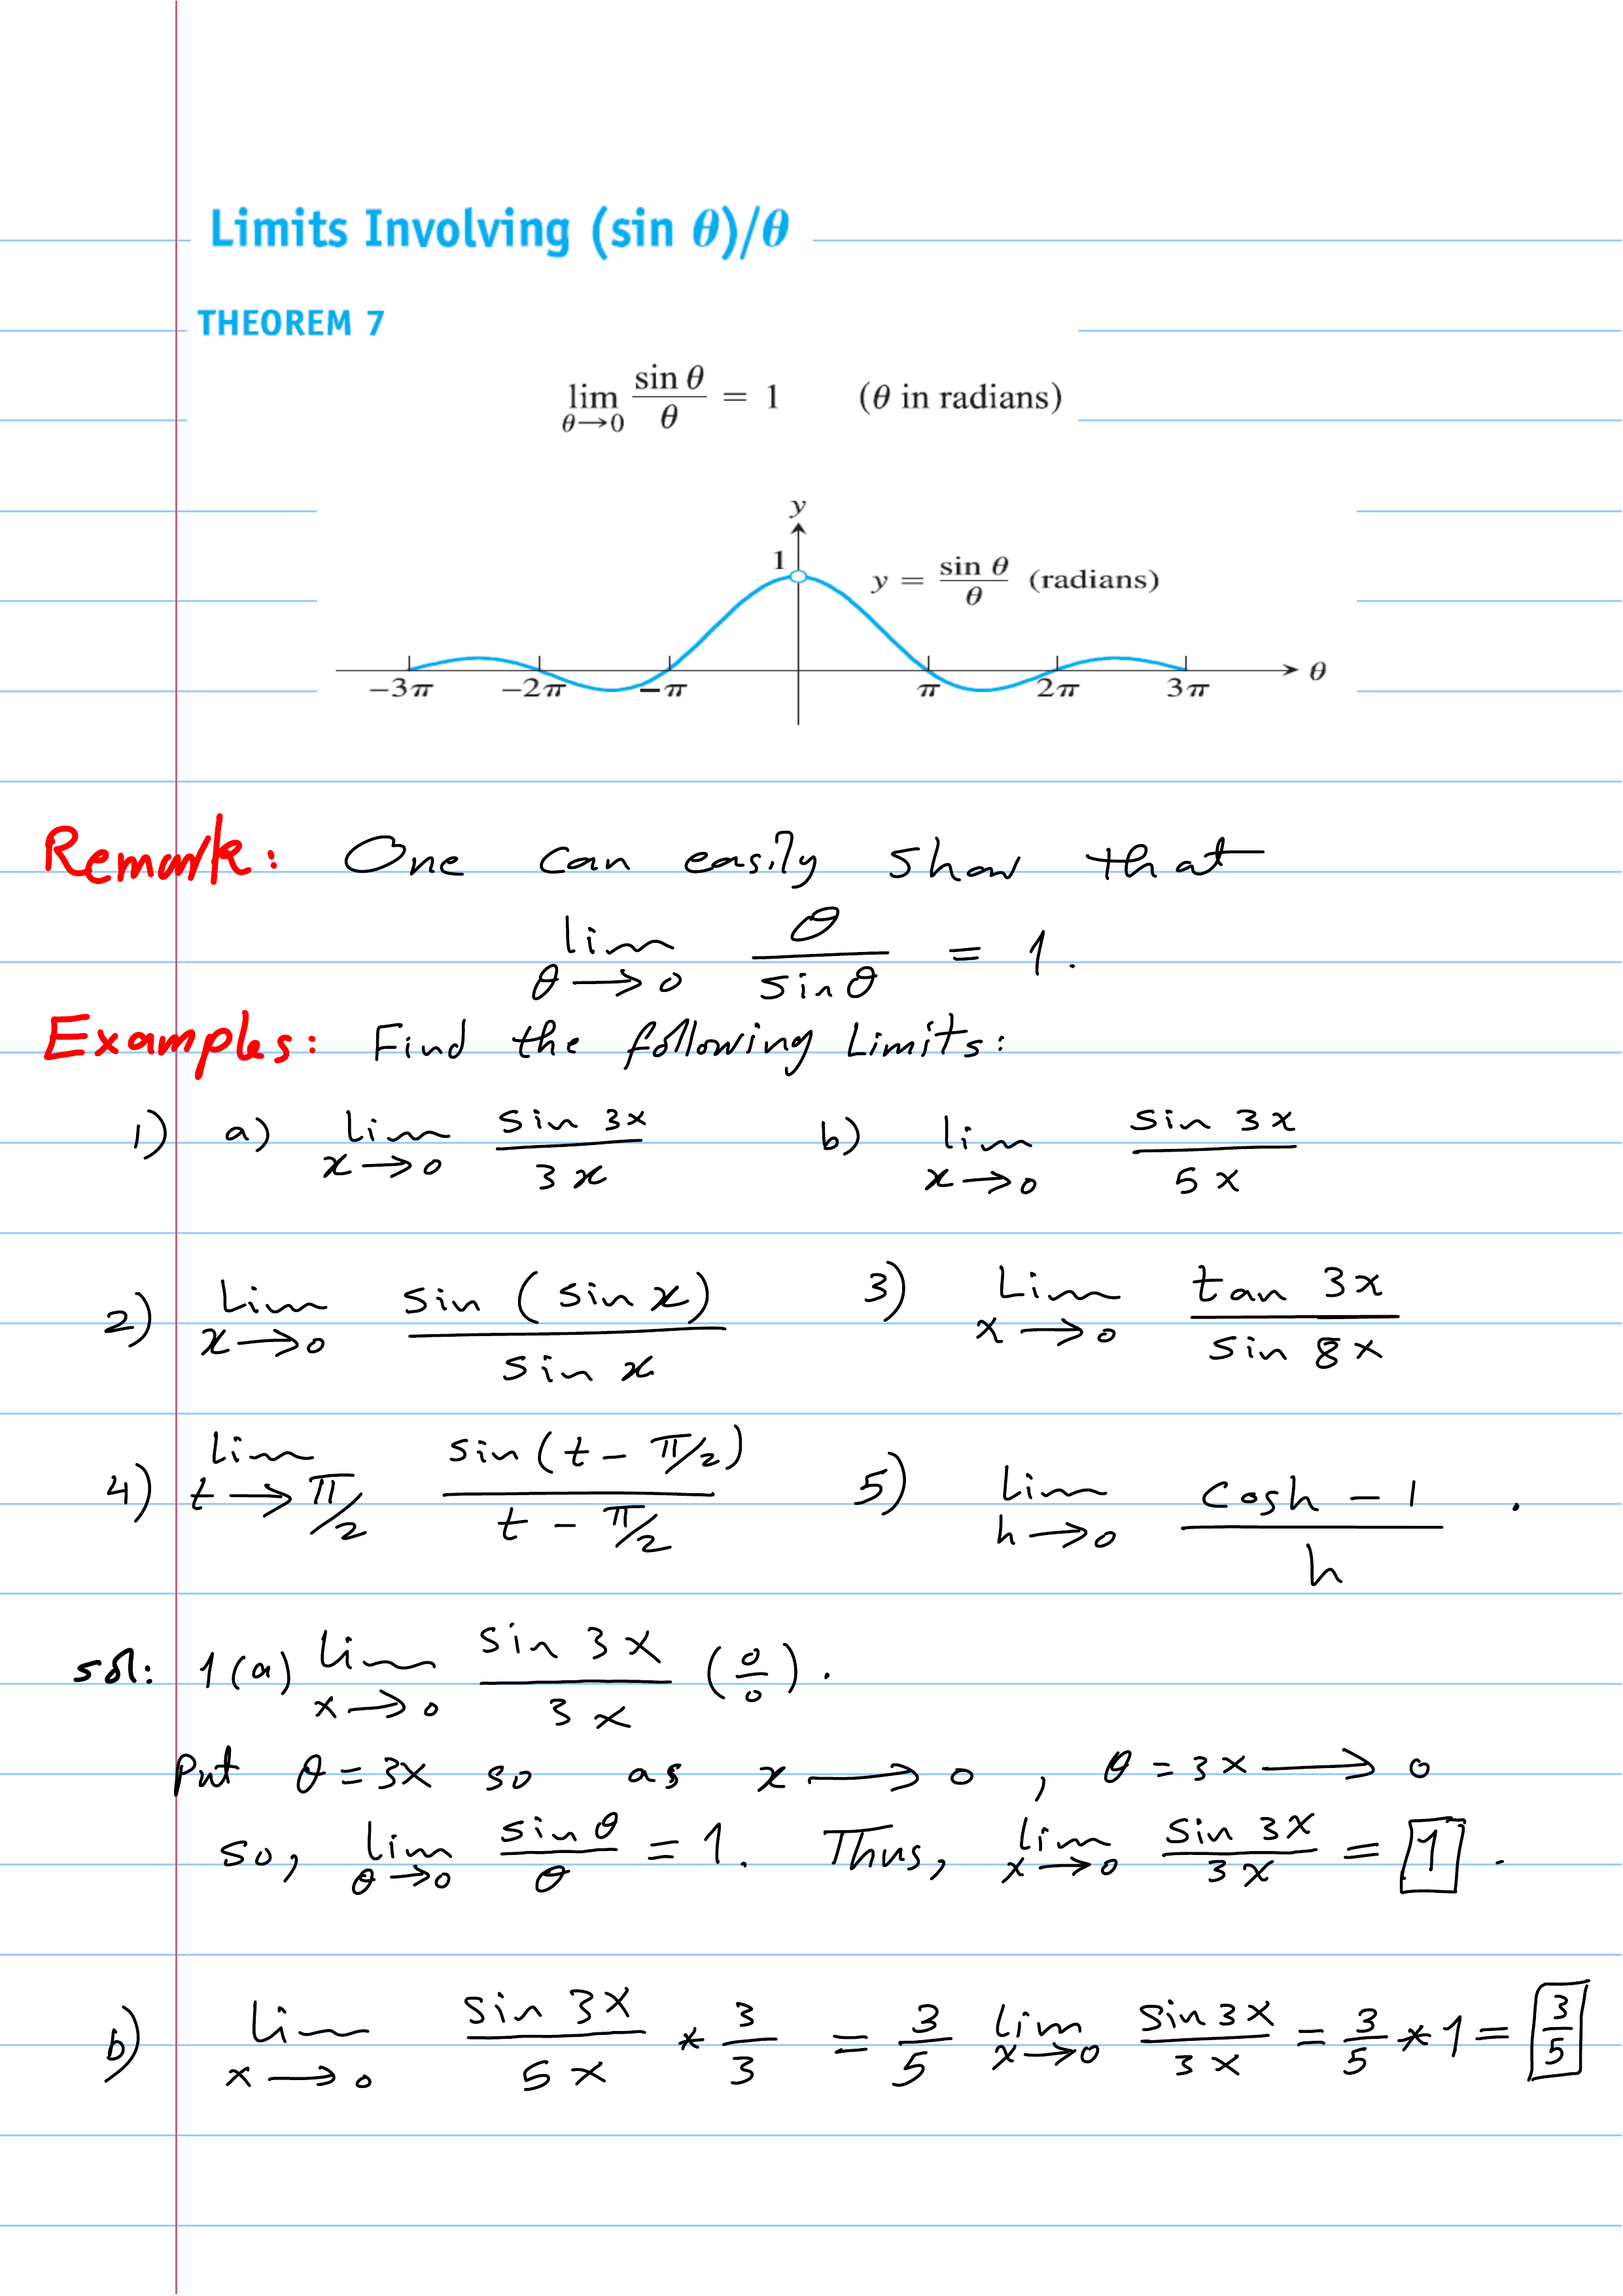 Limits Involving (sin θ)/θ
THEOREM 7
lim θ→0 sin θ/θ = 1 (θ in radians)
y
1
y = sin θ/θ (radians)
−3π −2π −π π 2π 3π θ
Remark: One can easily show that
lim θ→0 θ/sin θ = 1.
Examples: Find the following Limits:
1) a) lim x→0 sin 3x/3x b) lim x→0 sin 3x/5x
2) Lim x→0 sin (sin x)/sin x 3) Lim x→0 tan 3x/sin 8x
4) Lim t→π/2 sin(t − π/2)/t − π/2 5) Lim h→0 cosh − 1/h .
sol: 1(a) Lim x→0 sin 3x/3x (0/0).
Put θ = 3x so as x → 0 , θ = 3x → 0
so, lim θ→0 sin θ/θ = 1. Thus, lim x→0 sin 3x/3x = 1 .
b) Lim x→0 sin 3x/5x * 3/3 = 3/5 lim x→0 sin 3x/3x = 3/5 * 1 = 3/5